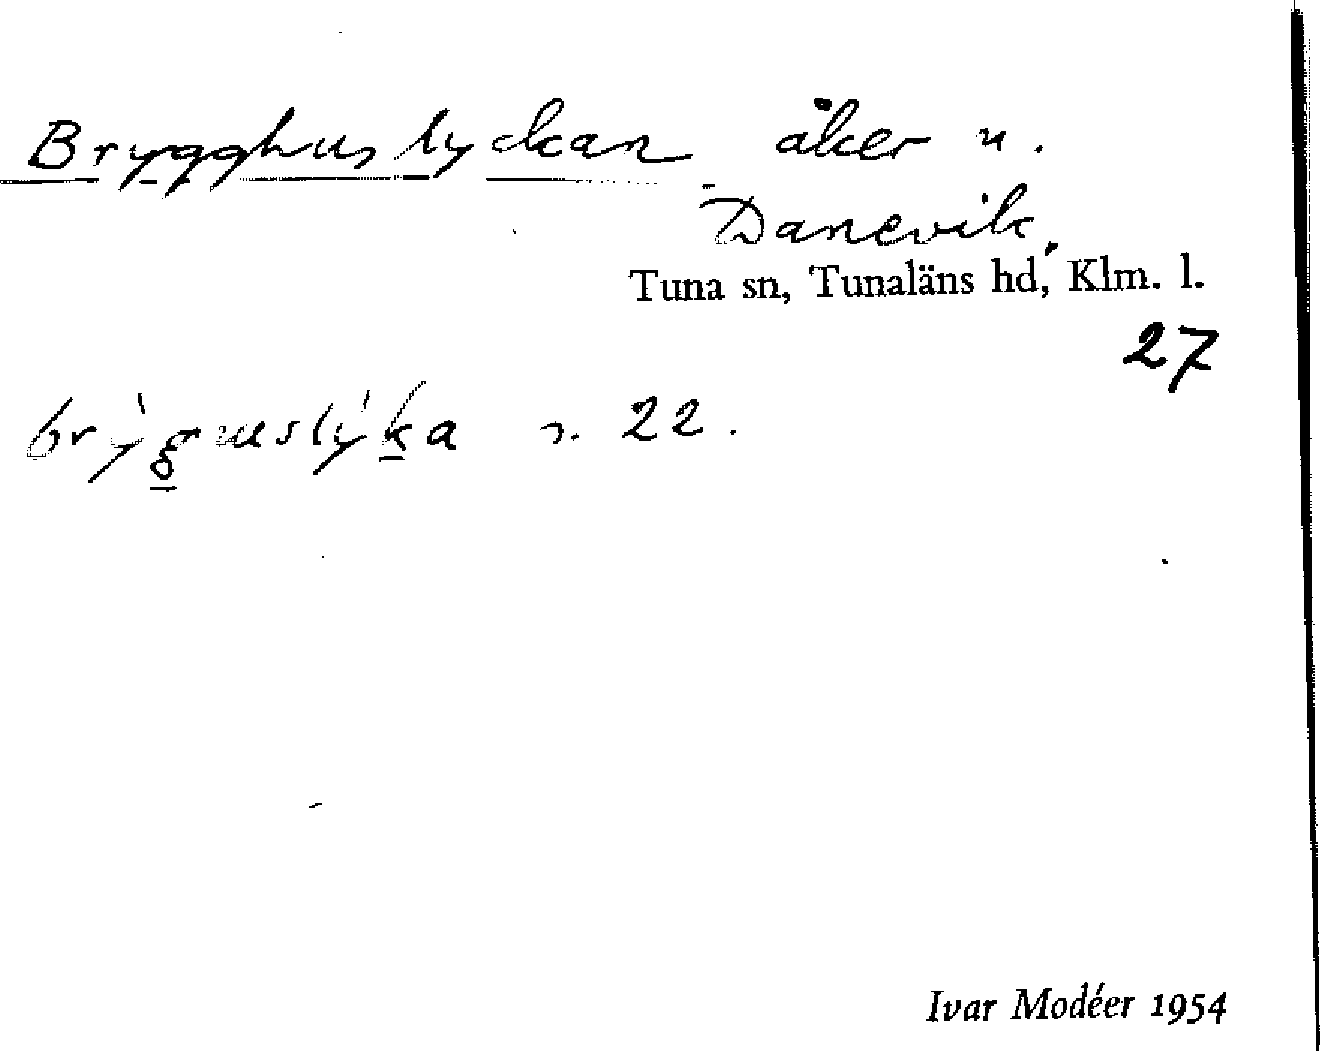 Brygghuslyckan åker u.
Danevik.
Tuna sn, Tunaläns hd, Klm. l.
27
brýg̲uslýk̲a s. 22.
Ivar Modéer 1954